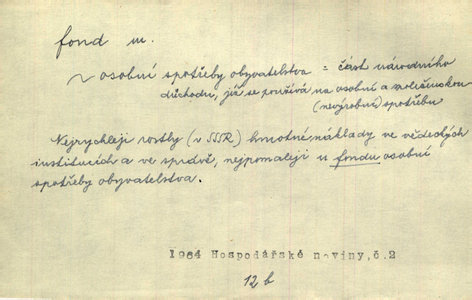 fond m.
~ osobní spotřeby obyvatelstva = část národního
důchodu, jíž se používá na osobní a společenskou
(nevýrobní) spotřebu
Nejrychleji rostly (v SSSR) hmotné náklady ve vědeckých
institucích a ve správě, nejpomaleji u fondu osobní
spotřeby obyvatelstva.
1964 Hospodářské noviny, č.2
12 b